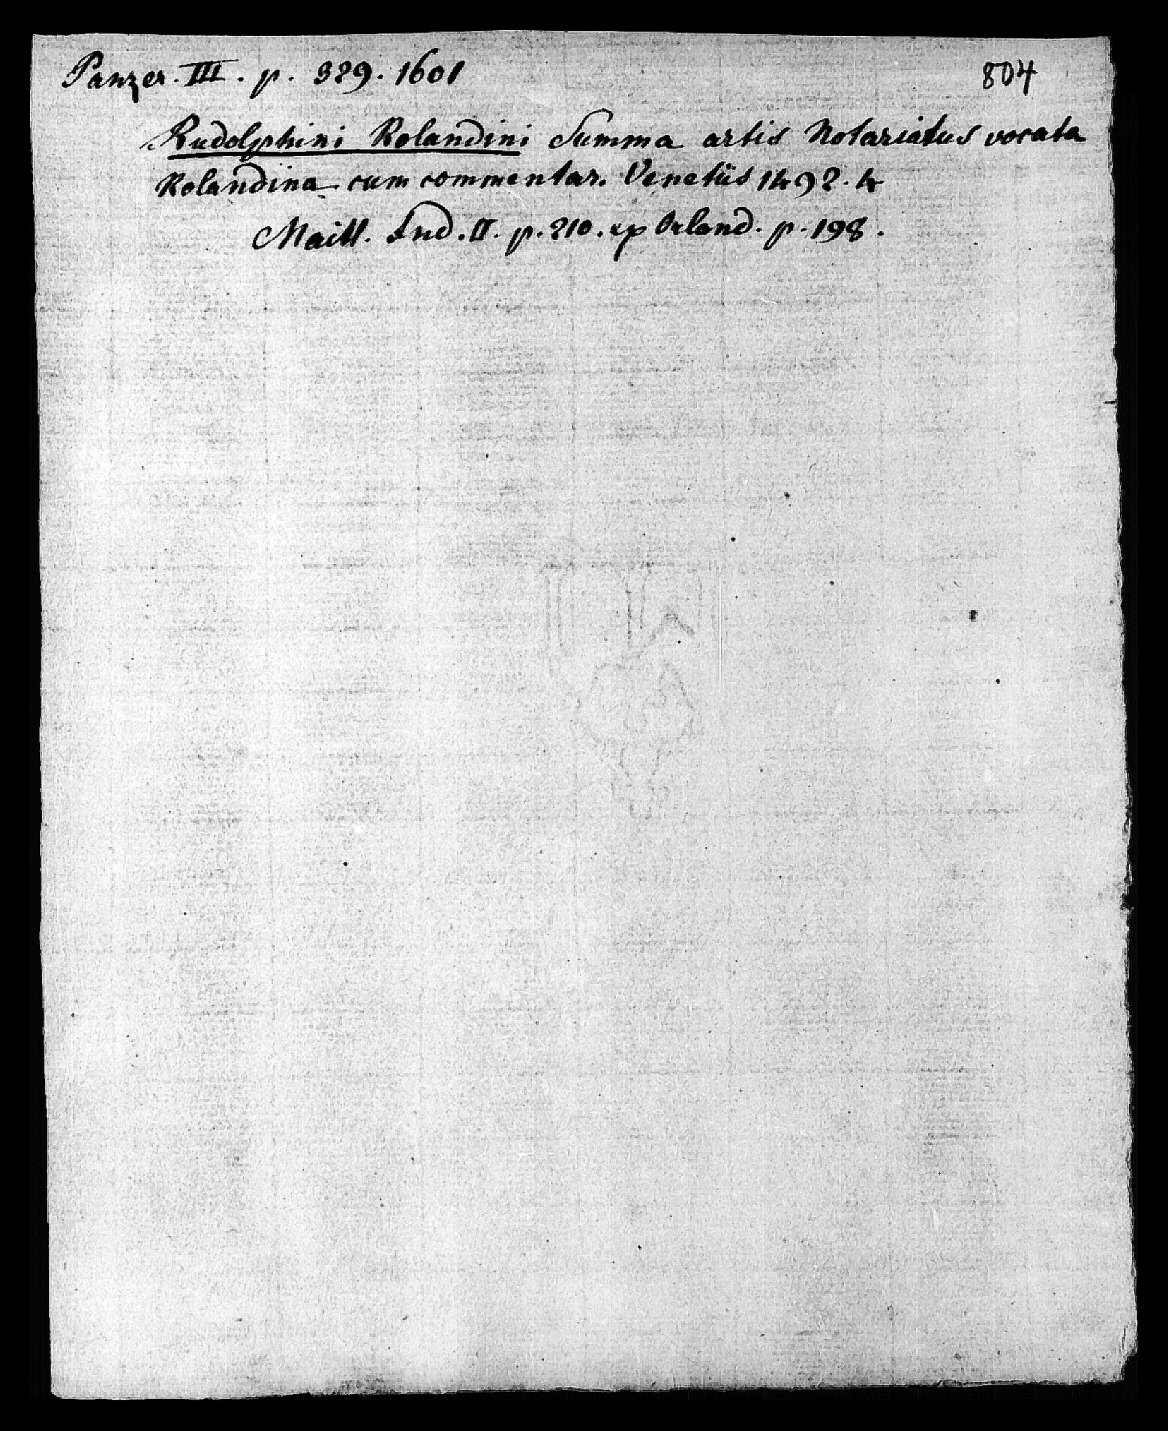 Panzer. III. p. 329. 1601
804
Rudolphini Rolandini Summa artis Notariatus vocata
Rolandina cum commentar. Venetiis 1492. 4
Maitt. Ind. II. p. 210. ex Orland. p. 198.